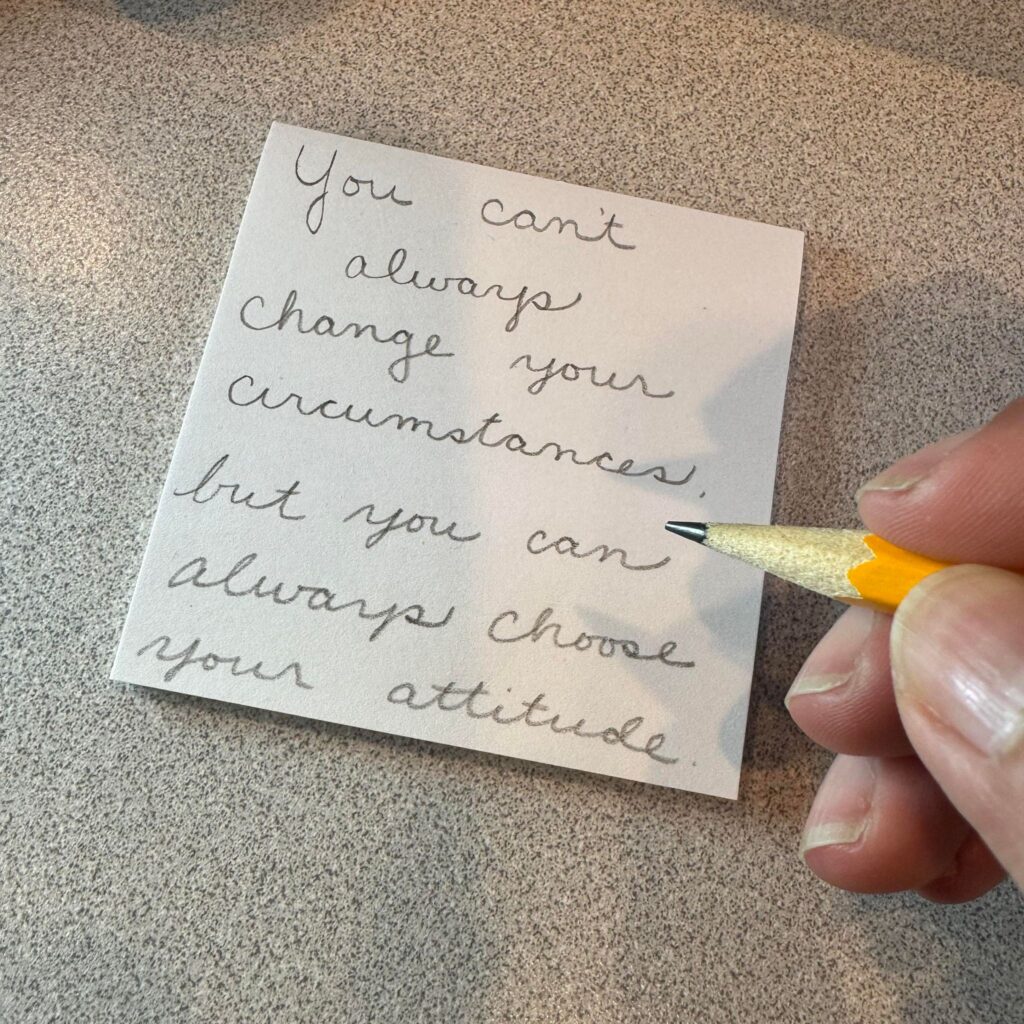 You can't
always
change your
circumstances,
but you can
always choose
your attitude.